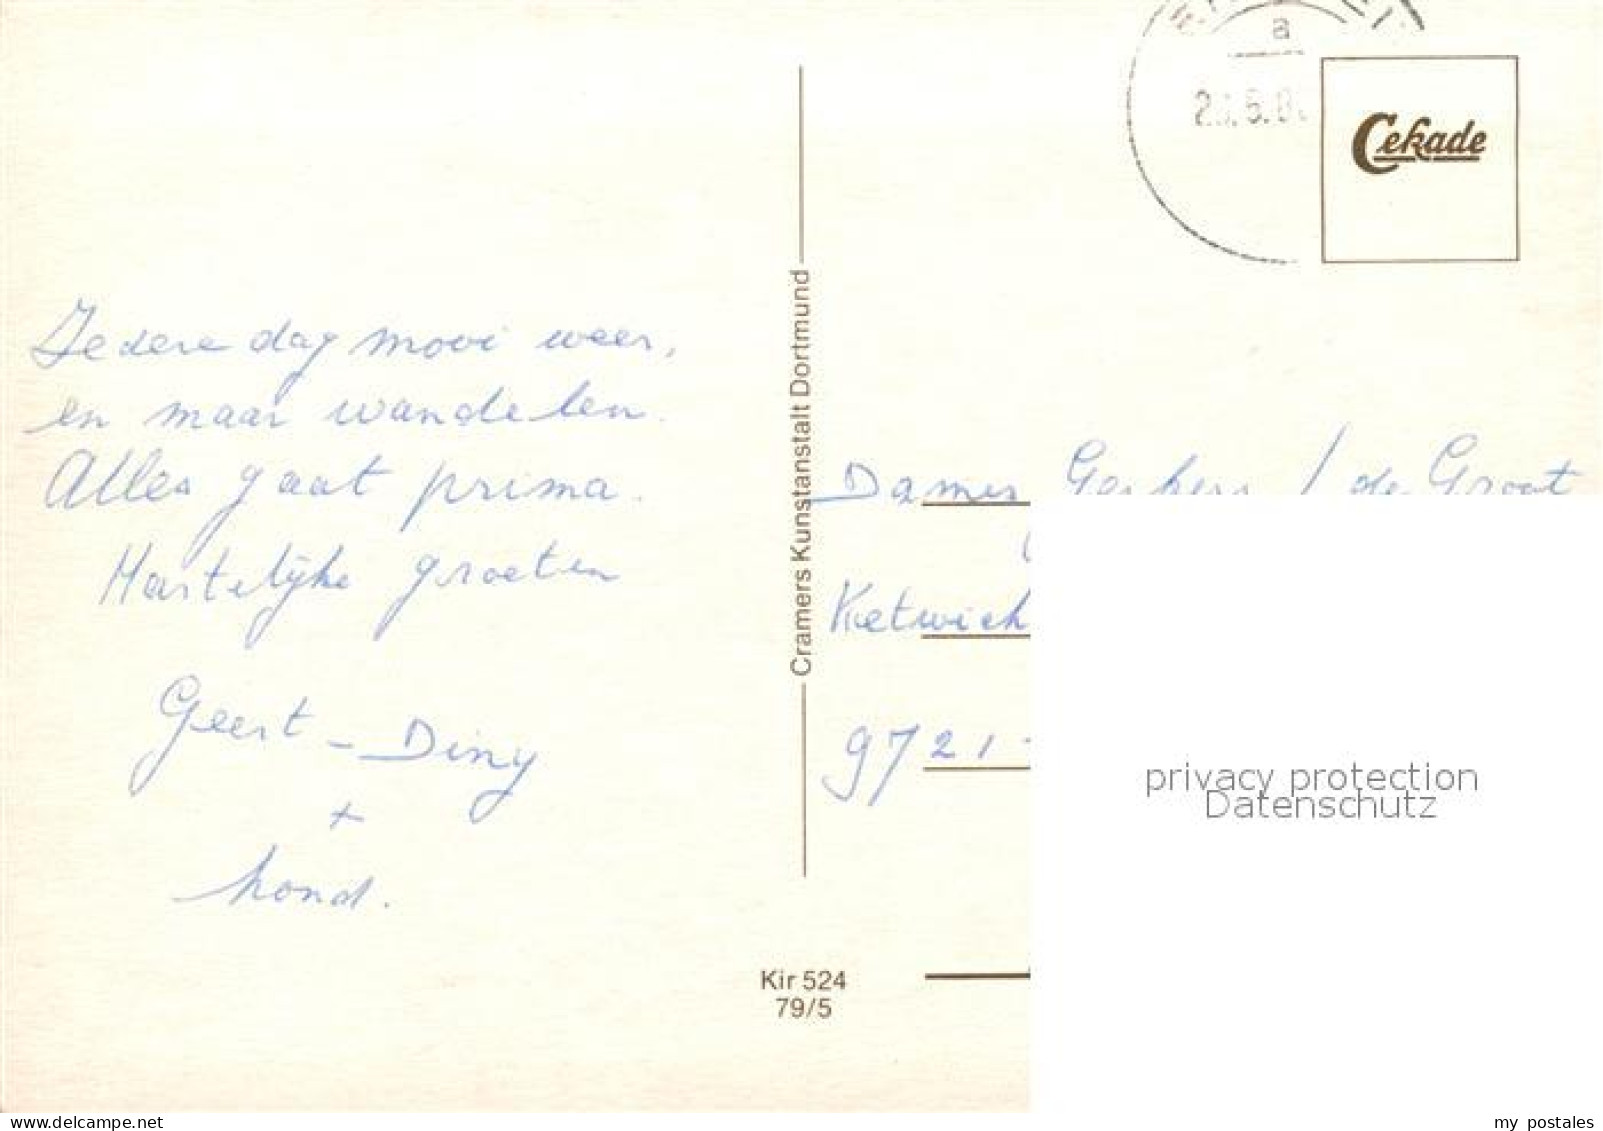 Iedere dag mooi weer,
en maar wandelen.
Alles gaat prima.
Hartelijke groeten
Geert - Diny
+
hond.
Cramers Kunstanstalt Dortmund
Kir 524
79/5
a
Cekade
Dames Gerkens / de Groot
Ketwich
9721 -
privacy protection
Datenschutz
www.delcampe.net
my postales